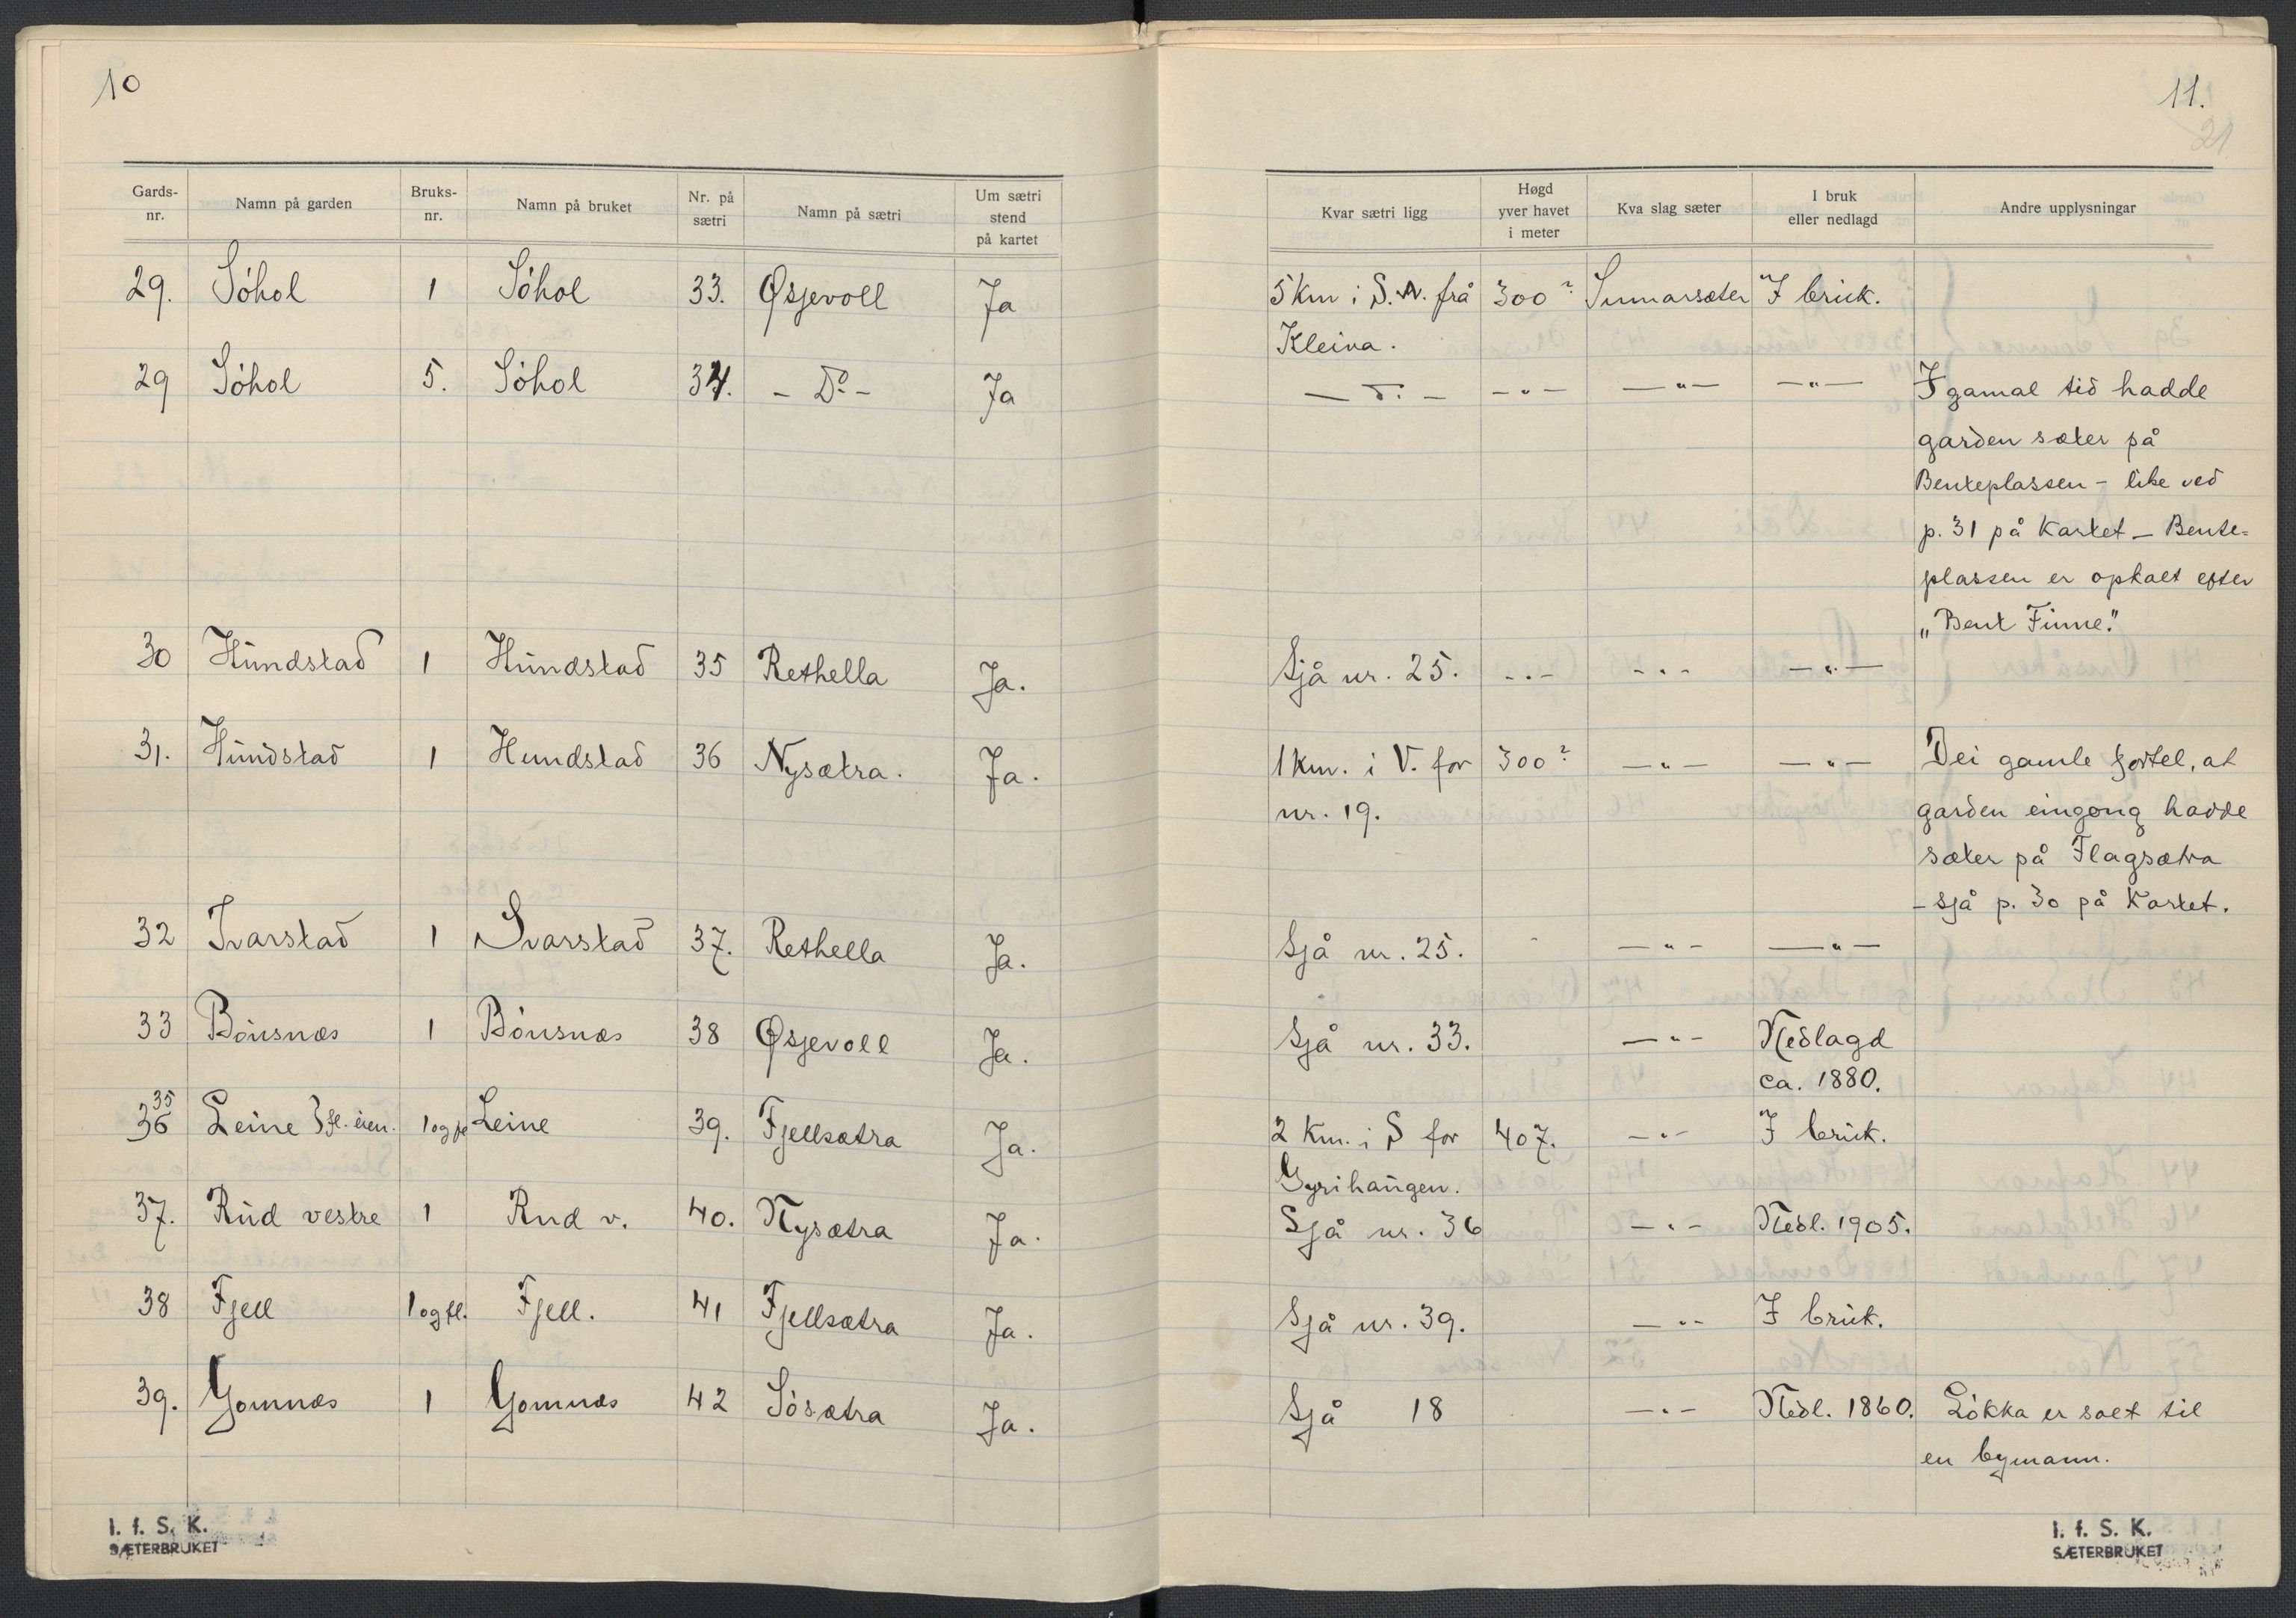 10
Gards-nr. Namn på garden Bruks-nr. Namn på bruket Nr. på sætri Namn på sætri Um sætri stend på kartet
29. Sóhol 1 Sóhol 33. Øsjevoll Ja
29 Sóhol 5. Sóhol 34. - Do - Ja
30 Hundstad 1 Hundstad 35 Rethella Ja.
31. Hundstad 1 Hundstad 36 Nysætra. Ja.
32 Ivarstad 1 Ivarstad 37. Rethella Ja.
33 Bónsnæs 1 Bónsnæs 38 Øsjevoll Ja.
35
36 Leine } fl. eien. 1 og fl Leine 39. Fjellsætra Ja.
37. Rud vestre 1 Rud v. 40. Nysætra Ja.
38 Fjell 1 og fl. Fjell. 41 Fjellsætra Ja.
39. Gomnæs 1 Gomnæs 42 Sósætra Ja.
I. f. S. K.
SÆTERBRUKET
11.
21
Kvar sætri ligg Høgd yver havet i meter Kva slag sæter I bruk eller nedlagd Andre upplysningar
5 Km i S.V. frå 300? Sumarsæter I bruk.
Kleiva.
— D. — - " - — " — — " — I gamal tid hadde
garden sæter på
Benteplassen - like ved
p. 31 på Kartet — Bente-
plassen er opkalt efter
„Bent Finne."
Sjå nr. 25. - " - - " - — " —
1 Km. i V. for 300? — " — — " — Dei gamle fortel, at
nr. 19. garden eingong hadde
sæter på Flagsætra
- sjå p. 30 på Kartet.
Sjå nr. 25. - — " - — " —
Sjå nr. 33. — " - Nedlagd
ca. 1880.
2 Km. i S for 407. — " - I bruk.
Gyrihaugen.
Sjå nr. 36 — " - Nedl. 1905.
Sjå nr. 39. — " - I bruk.
Sjå 18 — " - Nedl. 1860. Lókka er solt til
en bymann.
I. f. S. K.
SÆTERBRUKET